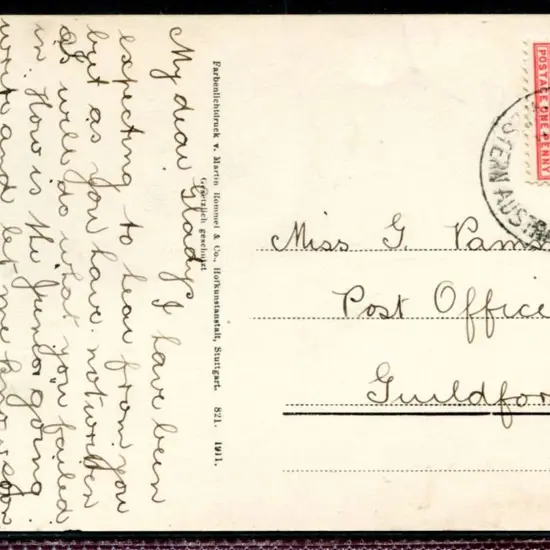 My dear Gladys I have been
expecting to hear from you
but as you have not written
as will do what you failed
in. How is the "Junior" going
write and let me know soon
Farbenlichtdruck v. Martin Rommel & Co., Hofkunstanstalt, Stuttgart. 821. 1911.
Gesetzlich geschützt
POSTAGE ONE PENNY
STERN AUSTRA
Miss G. Pams
Post Office
Guildfor